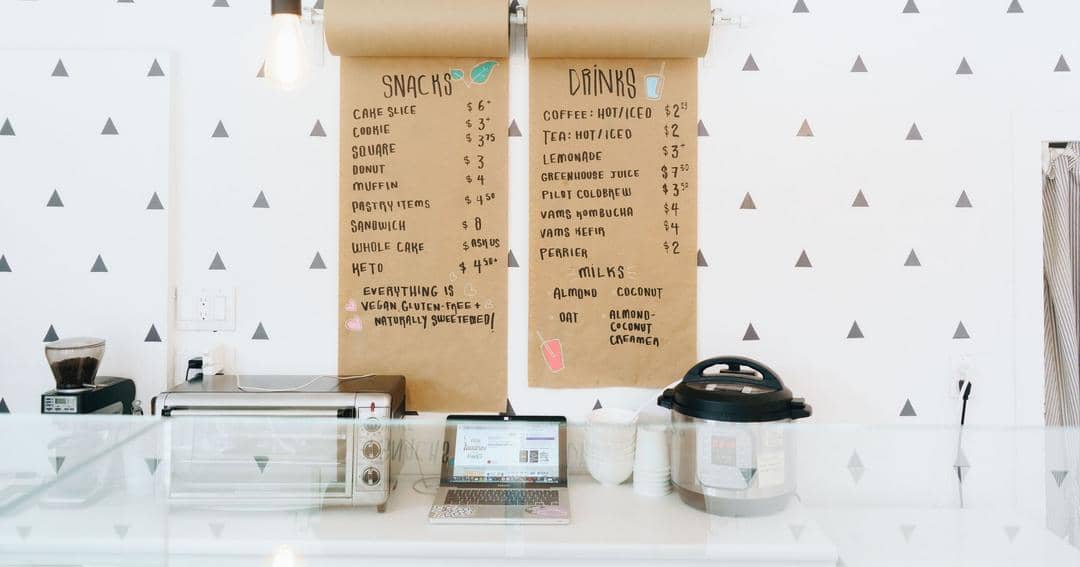 SNACKS
CAKE SLICE $6+
COOKIE $3+
SQUARE $3.75
DONUT $3
MUFFIN $4
PASTRY ITEMS $4.50
SANDWICH $8
WHOLE CAKE $ASK US
KETO $4.50+
EVERYTHING IS
VEGAN, GLUTEN-FREE +
NATURALLY SWEETENED!
DRINKS
COFFEE: HOT/ICED
TEA: HOT/ICED $2
LEMONADE $3+
GREENHOUSE JUICE $7.50
PILOT COLDBREW $3.50
VAMS KOMBUCHA $4
VAMS KEFIR $4
PERRIER $2
MILKS
ALMOND COCONUT
OAT ALMOND-
COCONUT
CREAMER